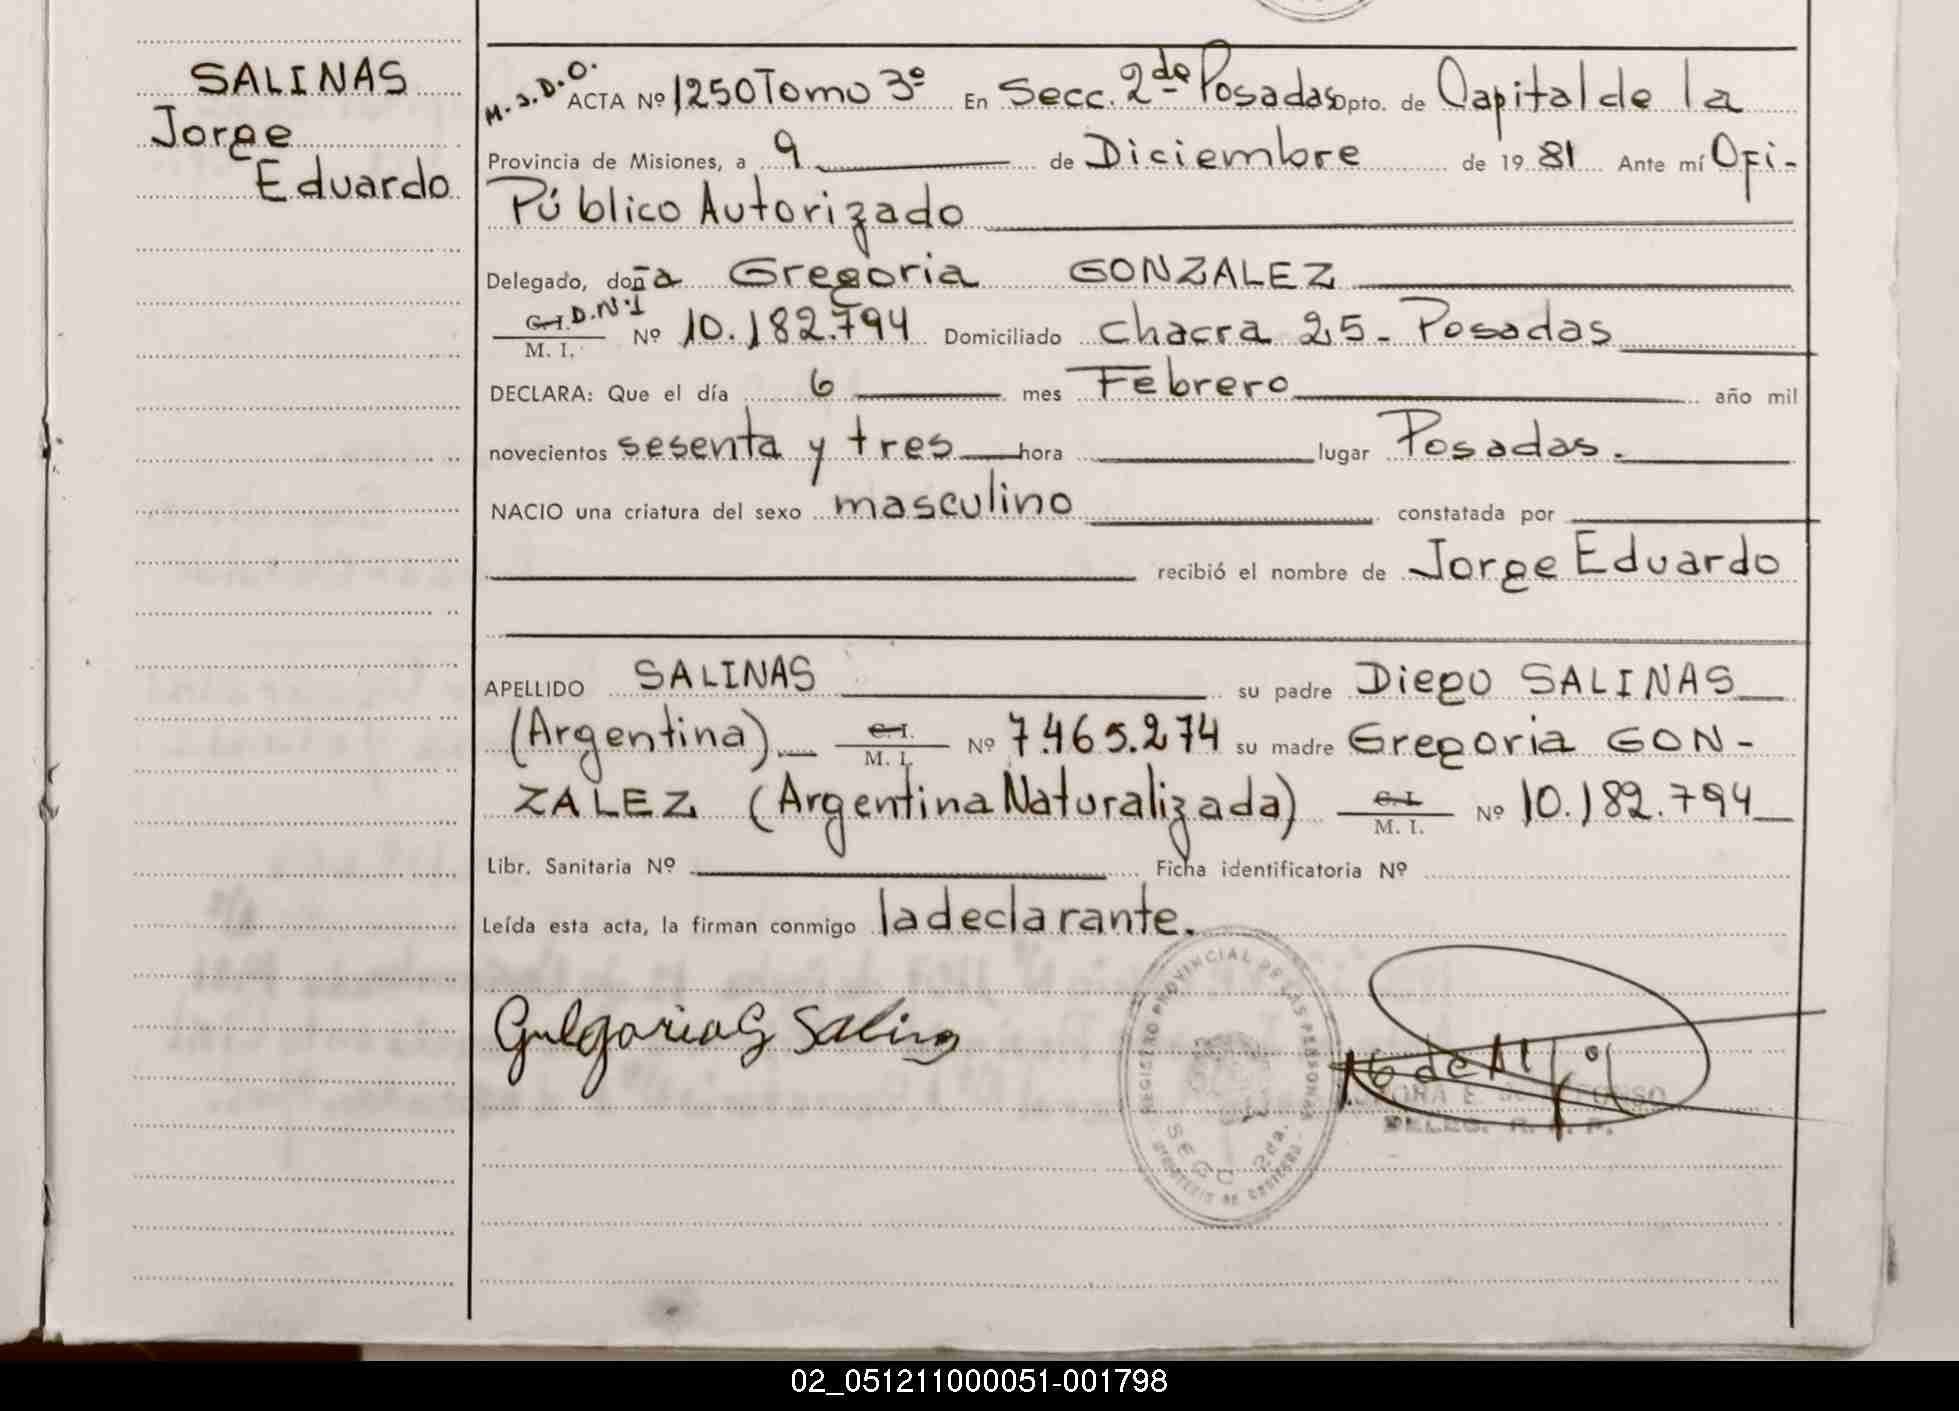 SALINAS
Jorge
Eduardo
M.S.D.O. ACTA Nº 1250 Tomo 3º En Secc. 2da Posadas Dpto. de Capital de la
Provincia de Misiones, a 9 de Diciembre de 1981 Ante mí Ofi-
Público Autorizado
Delegado, doña Gregoria GONZALEZ
C.I. D.N.I
M. I. Nº 10.182.794 Domiciliado Chacra 25 - Posadas
DECLARA: Que el día 6 mes Febrero año mil
novecientos sesenta y tres hora lugar Posadas.
NACIO una criatura del sexo masculino constatada por
recibió el nombre de Jorge Eduardo
APELLIDO SALINAS su padre Diego SALINAS
(Argentina). C.I. M. I. Nº 7.465.274 su madre Gregoria GON-
ZALEZ (Argentina Naturalizada) C.I. M. I. Nº 10.182.794
Libr. Sanitaria Nº Ficha identificatoria Nº
Leída esta acta, la firman conmigo la declarante.
REGISTRO PROVINCIAL DE LAS PERSONAS
SECC 2da.
MINISTERIO DE GOBIERNO
02_051211000051-001798